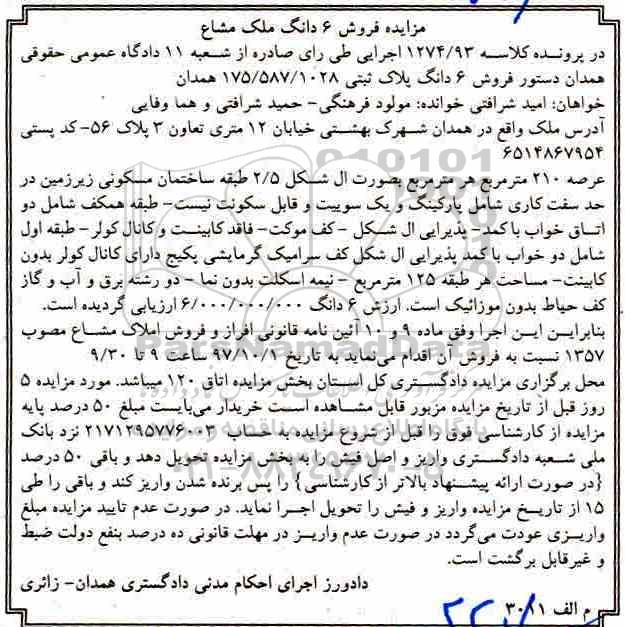 مزایده فروش ۶ دانگ ملک مشاع
در پرونده کلاسه ۱۲۷۴/۹۳ اجرایی طی رای صادره از شعبه ۱۱ دادگاه عمومی حقوقی
همدان دستور فروش ۶ دانگ پلاک ثبتی ۱۷۵/۵۸۷/۱۰۲۸ همدان
خواهان: امید شرافتی خوانده: مولود فرهنگی- حمید شرافتی و هما وفایی
آدرس ملک واقع در همدان شهرک بهشتی خیابان ۱۲ متری تعاون ۳ پلاک ۵۶- کد پستی
۶۵۱۴۸۶۷۹۵۴
عرصه ۲۱۰ مترمربع هر مترمربع بصورت ال شکل ۲/۵ طبقه ساختمان مسکونی زیرزمین در
حد سفت کاری شامل پارکینگ و یک سوییت و قابل سکونت نیست- طبقه همکف شامل دو
اتاق خواب با کمد- پذیرایی ال شکل - کف موکت- فاقد کابینت و کانال کولر- طبقه اول
شامل دو خواب با کمد پذیرایی ال شکل کف سرامیک گرمایشی پکیج دارای کانال کولر بدون
کابینت- مساحت هر طبقه ۱۲۵ مترمربع - نیمه اسکلت بدون نما - دو رشته برق و آب و گاز
کف حیاط بدون موزائیک است. ارزش ۶ دانگ ۶/۰۰۰/۰۰۰/۰۰۰ ارزیابی گردیده است.
بنابراین این اجرا وفق ماده ۹ و ۱۰ آئین نامه قانونی افراز و فروش املاک مشاع مصوب
۱۳۵۷ نسبت به فروش آن اقدام می‌نماید به تاریخ ۹۷/۱۰/۱ ساعت ۹ تا ۹/۳۰
محل برگزاری مزایده دادگستری کل استان بخش مزایده اتاق ۱۲۰ میباشد. مورد مزایده ۵
روز قبل از تاریخ مزایده مزبور قابل مشاهده است خریدار می‌بایست مبلغ ۵۰ درصد پایه
مزایده از کارشناسی فوق را قبل از شروع مزایده به حساب ۲۱۷۱۲۹۵۷۷۶۰۰۳ نزد بانک
ملی شعبه دادگستری واریز و اصل فیش را به بخش مزایده تحویل دهد و باقی ۵۰ درصد
{در صورت ارائه پیشنهاد بالاتر از کارشناسی} را پس برنده شدن واریز کند و باقی را طی
۱۵ از تاریخ مزایده واریز و فیش را تحویل اجرا نماید. در صورت عدم تایید مزایده مبلغ
واریزی عودت می‌گردد در صورت عدم واریز در مهلت قانونی ده درصد بنفع دولت ضبط
و غیرقابل برگشت است.
دادورز اجرای احکام مدنی دادگستری همدان- زائری
م الف ۳۰۱۱